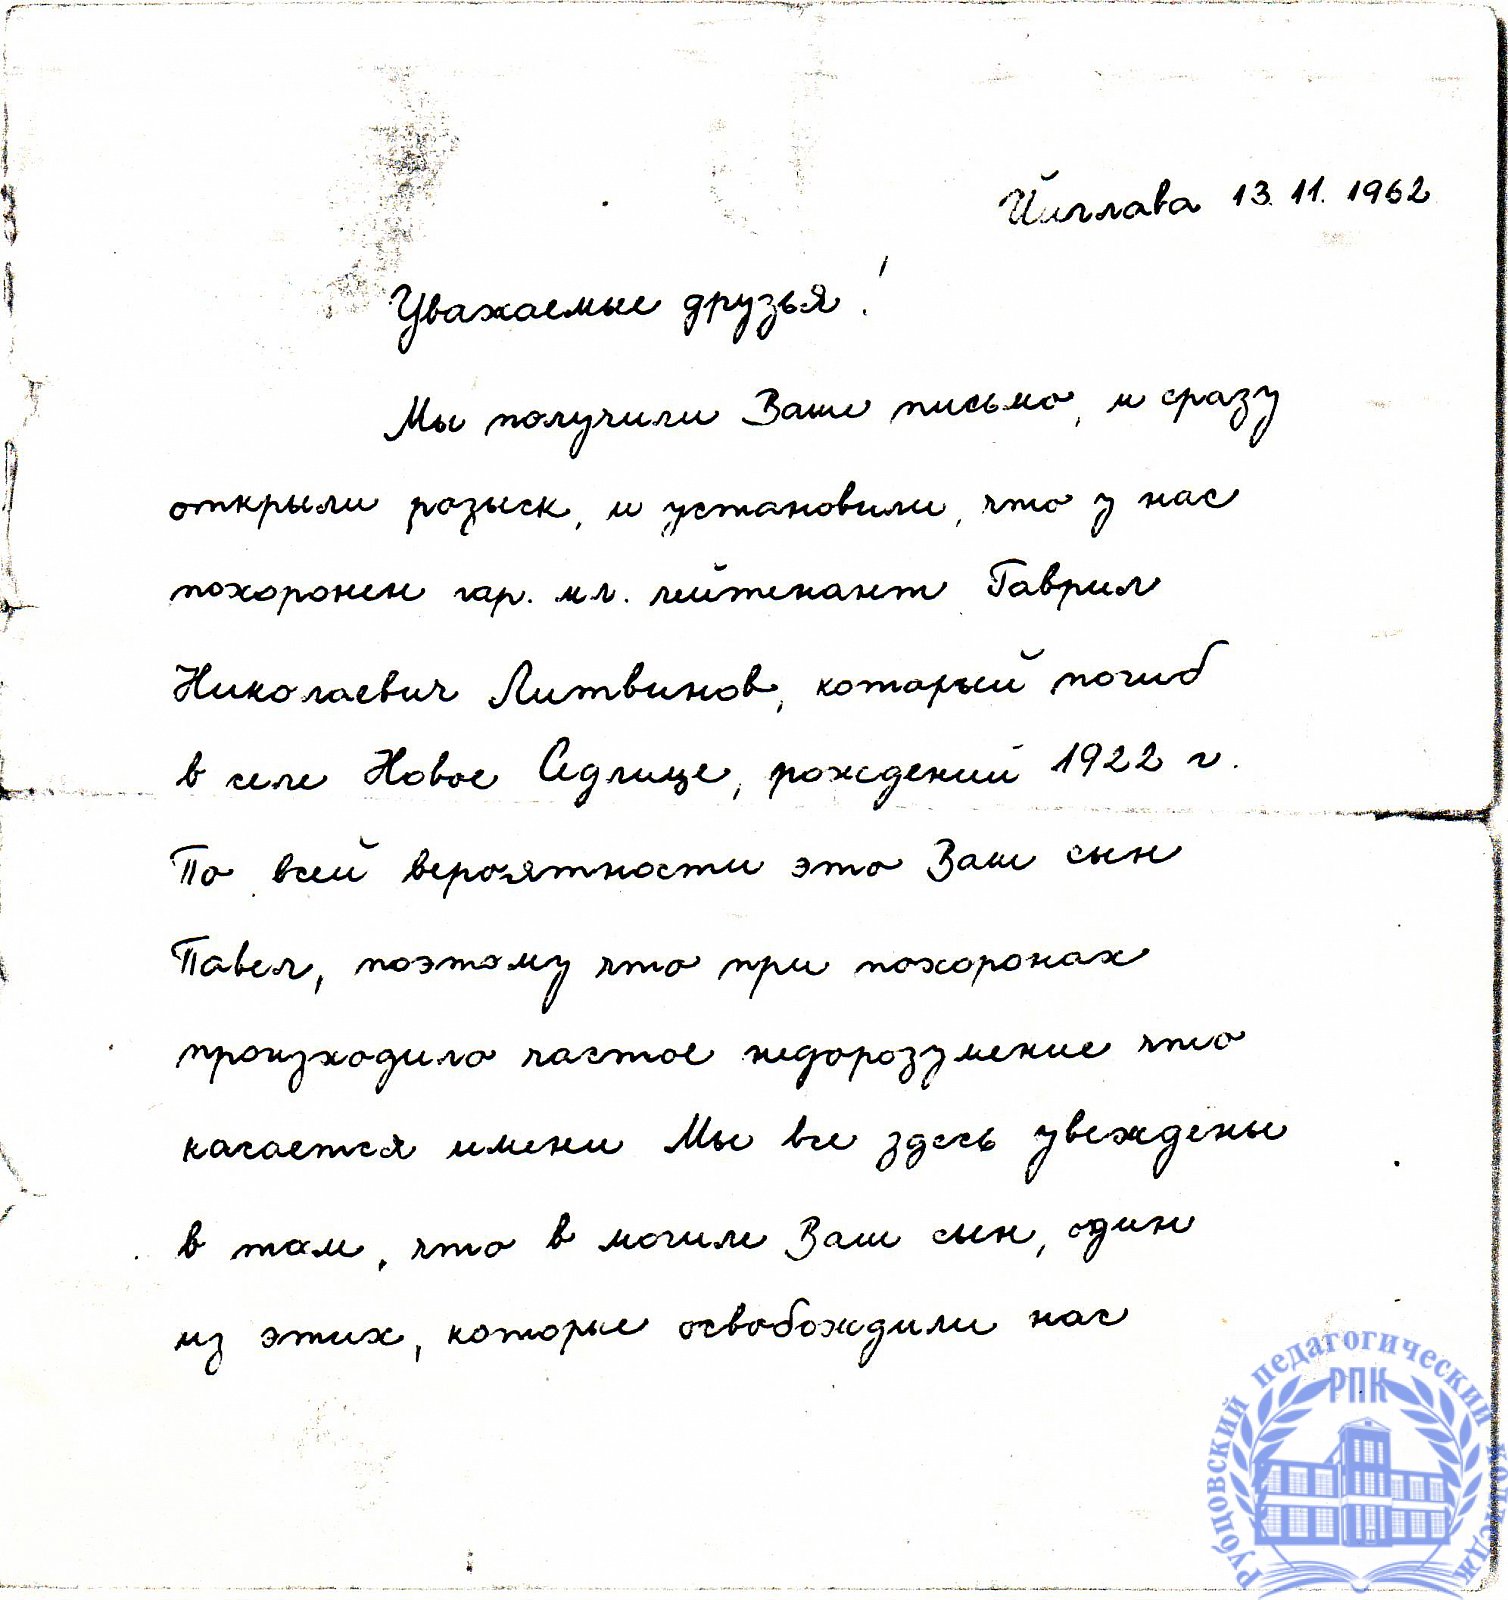 Йиглава 13. 11. 1962
Уважаемые друзья!
Мы получили Ваше письмо, и сразу
открыли розыск, и установили, что у нас
похоронен гар. мл. лейтенант Гаврил
Николаевич Литвинов, который погиб
в селе Новое Седлице, рождений 1922 г.
По всей вероятности это Ваш сын
Павел, поэтому что при похоронах
произходило частое недорозумение что
касается имени Мы все здесь увеждены
в том, что в могиле Ваш сын, один
из этих, которые освобождили нас
Рубцовский педагогический колледж
РПК